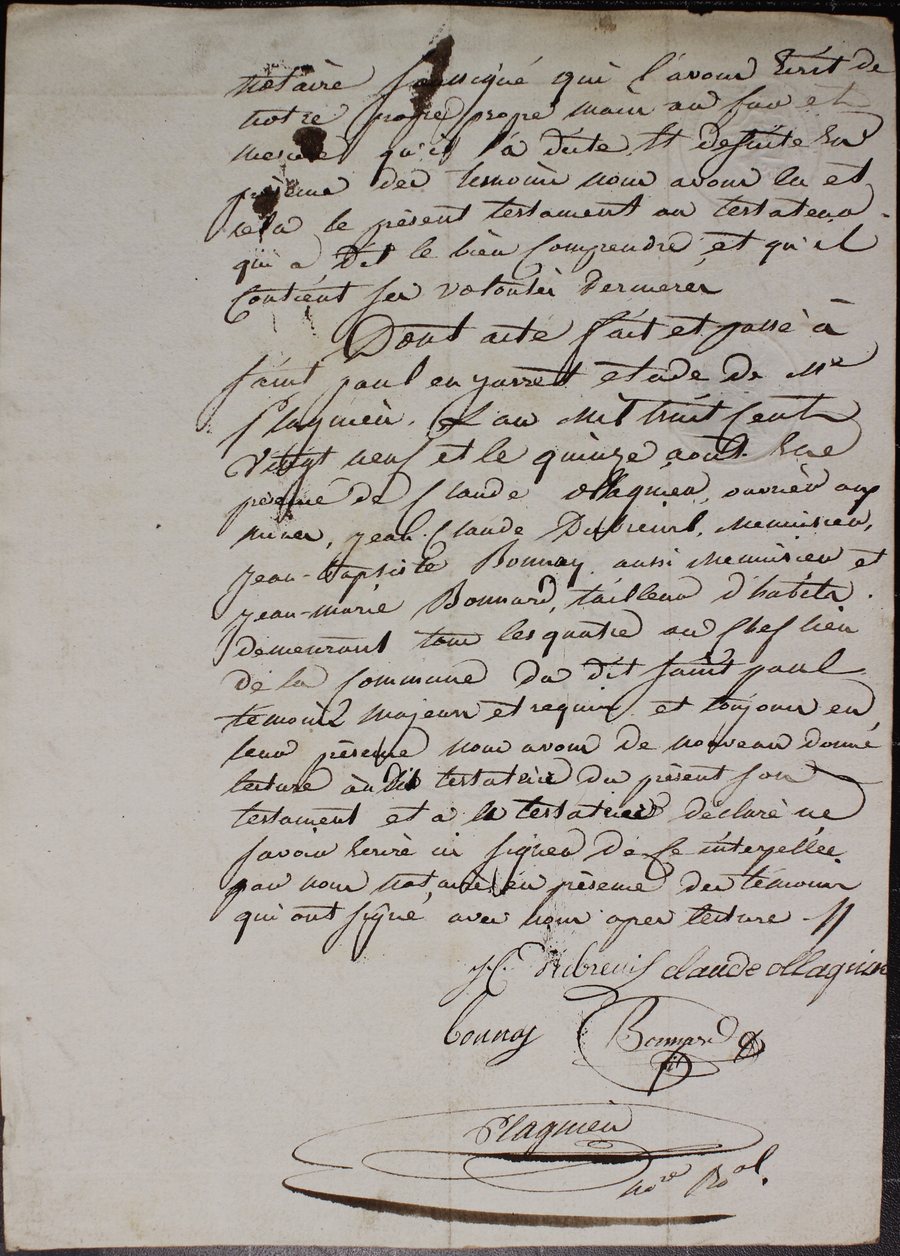 notaire soussigné qui l'avons écrit de
notre propre propre main au fur et
mesure qu'il l'a dicté et de suite en
présence des temoins nous avons lu et
relu le présent testament au testateur
qui a dit le bien comprendre, et qu'il
contient ses volontés dernieres
Dont acte fait et passé à
Saint paul en jarrest etude de Me
Plagnieu, L'an mil huit cent
vingt neuf et le quinze août. En
présence de Claude ollagnier, ouvrier aux
mines, jean-Claude Dubreuil, menuisier,
jean-baptiste Bonnay, aussi menuisier et
jean-marie Bonnard, tailleur d'habits.
demeurants tous les quatre au Chef lieu
de la Commune du dit saint paul
temoins majeurs et requis et toujours en
leur présence nous avons de nouveau donné
lecture au dit testateur du présent son
testament et a le testateur déclaré ne
savoir écrire ni signer de ce interpellée
par nous notaire en présence des témoins
qui ont signé avec nous apres lecture -//
J.C. dubreuil claude ollagnier
bonnay Bonnard
Plagnieu
nore Roal.